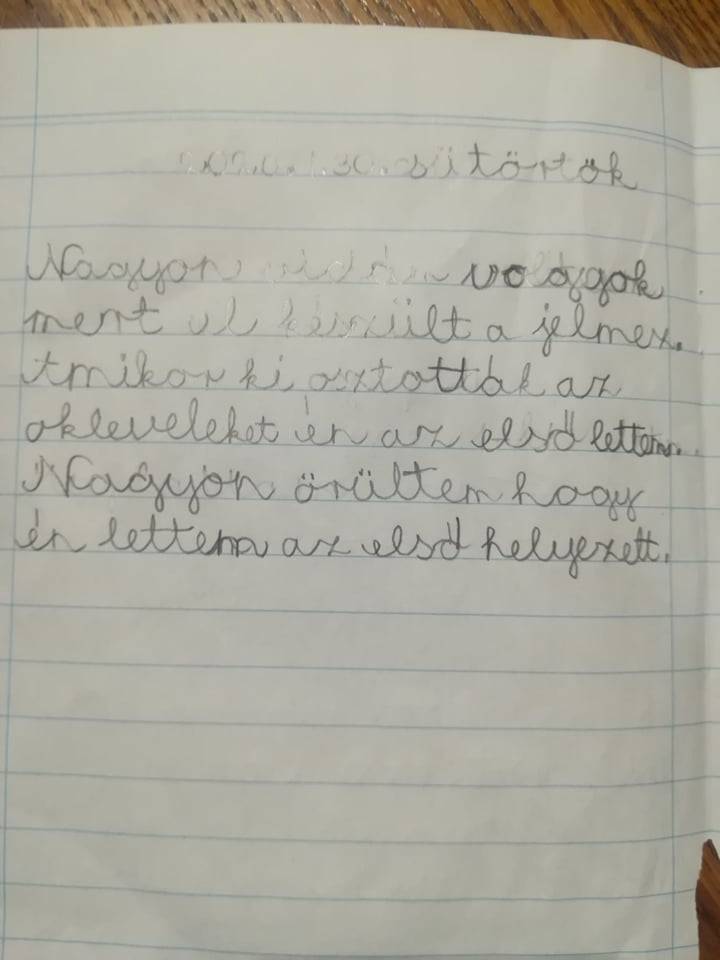 sütörtök
Nagyon vidám vologgok
mert el készült a jelmez.
Amikor ki osztották az
okleveleket én az első lettem.
Nagyon örültem hogy
én lettem az első helyezett.